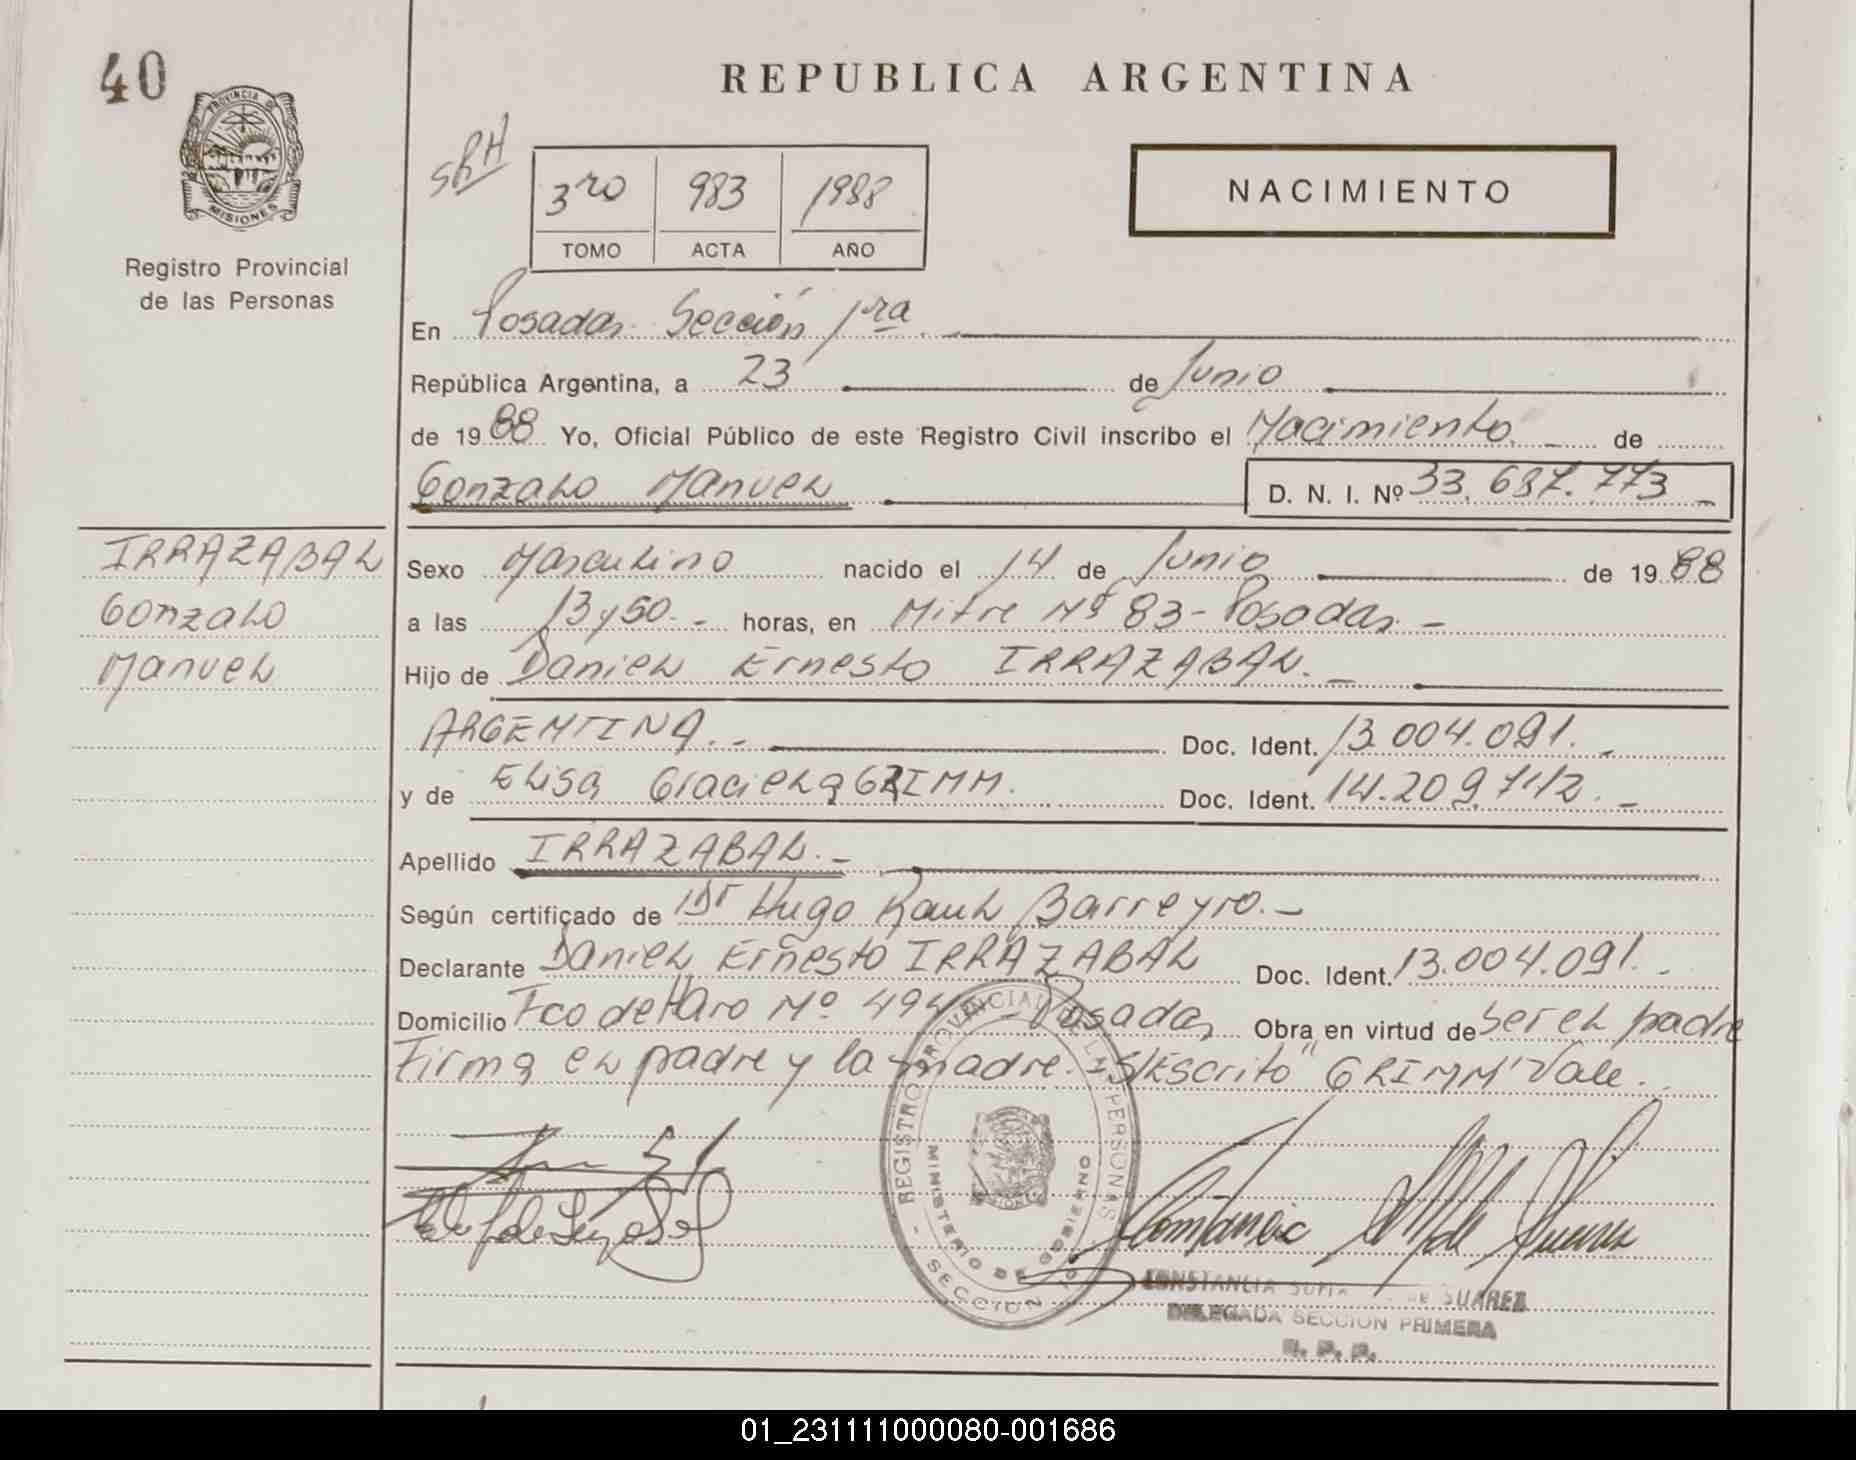 40
REPUBLICA ARGENTINA
PROVINCIA DE
MISIONES
Registro Provincial
de las Personas
SRH
3ro 983 1988
TOMO ACTA AÑO
NACIMIENTO
En Posadas Sección 1ra
República Argentina, a 23 de Junio
de 1988 Yo, Oficial Público de este Registro Civil inscribo el Nacimiento de
Gonzalo Manuel D. N. I. Nº 33.687.773
IRRAZABAL
Gonzalo
Manuel
Sexo Masculino nacido el 14 de Junio de 1988
a las 13 y 50 horas, en Mitre Nº 83 - Posadas
Hijo de Daniel Ernesto IRRAZABAL
ARGENTINA Doc. Ident. 13.004.091
y de Elisa Graciela GRIMM Doc. Ident. 14.209.712
Apellido IRRAZABAL
Según certificado de Dr Hugo Raul Barreyro
Declarante Daniel Ernesto IRRAZABAL Doc. Ident. 13.004.091
Domicilio Fco de Haro Nº 494 - Posadas Obra en virtud de ser el padre
Firma el padre y la madre. S/Escrito "GRIMM" Vale.
REGISTRO PROVINCIAL DE LAS PERSONAS
MINISTERIO DE GOBIERNO
SECCION 1º
CONSTANCIA de SUAREZ
DELEGADA SECCION PRIMERA
R. P. P.
01_231111000080-001686